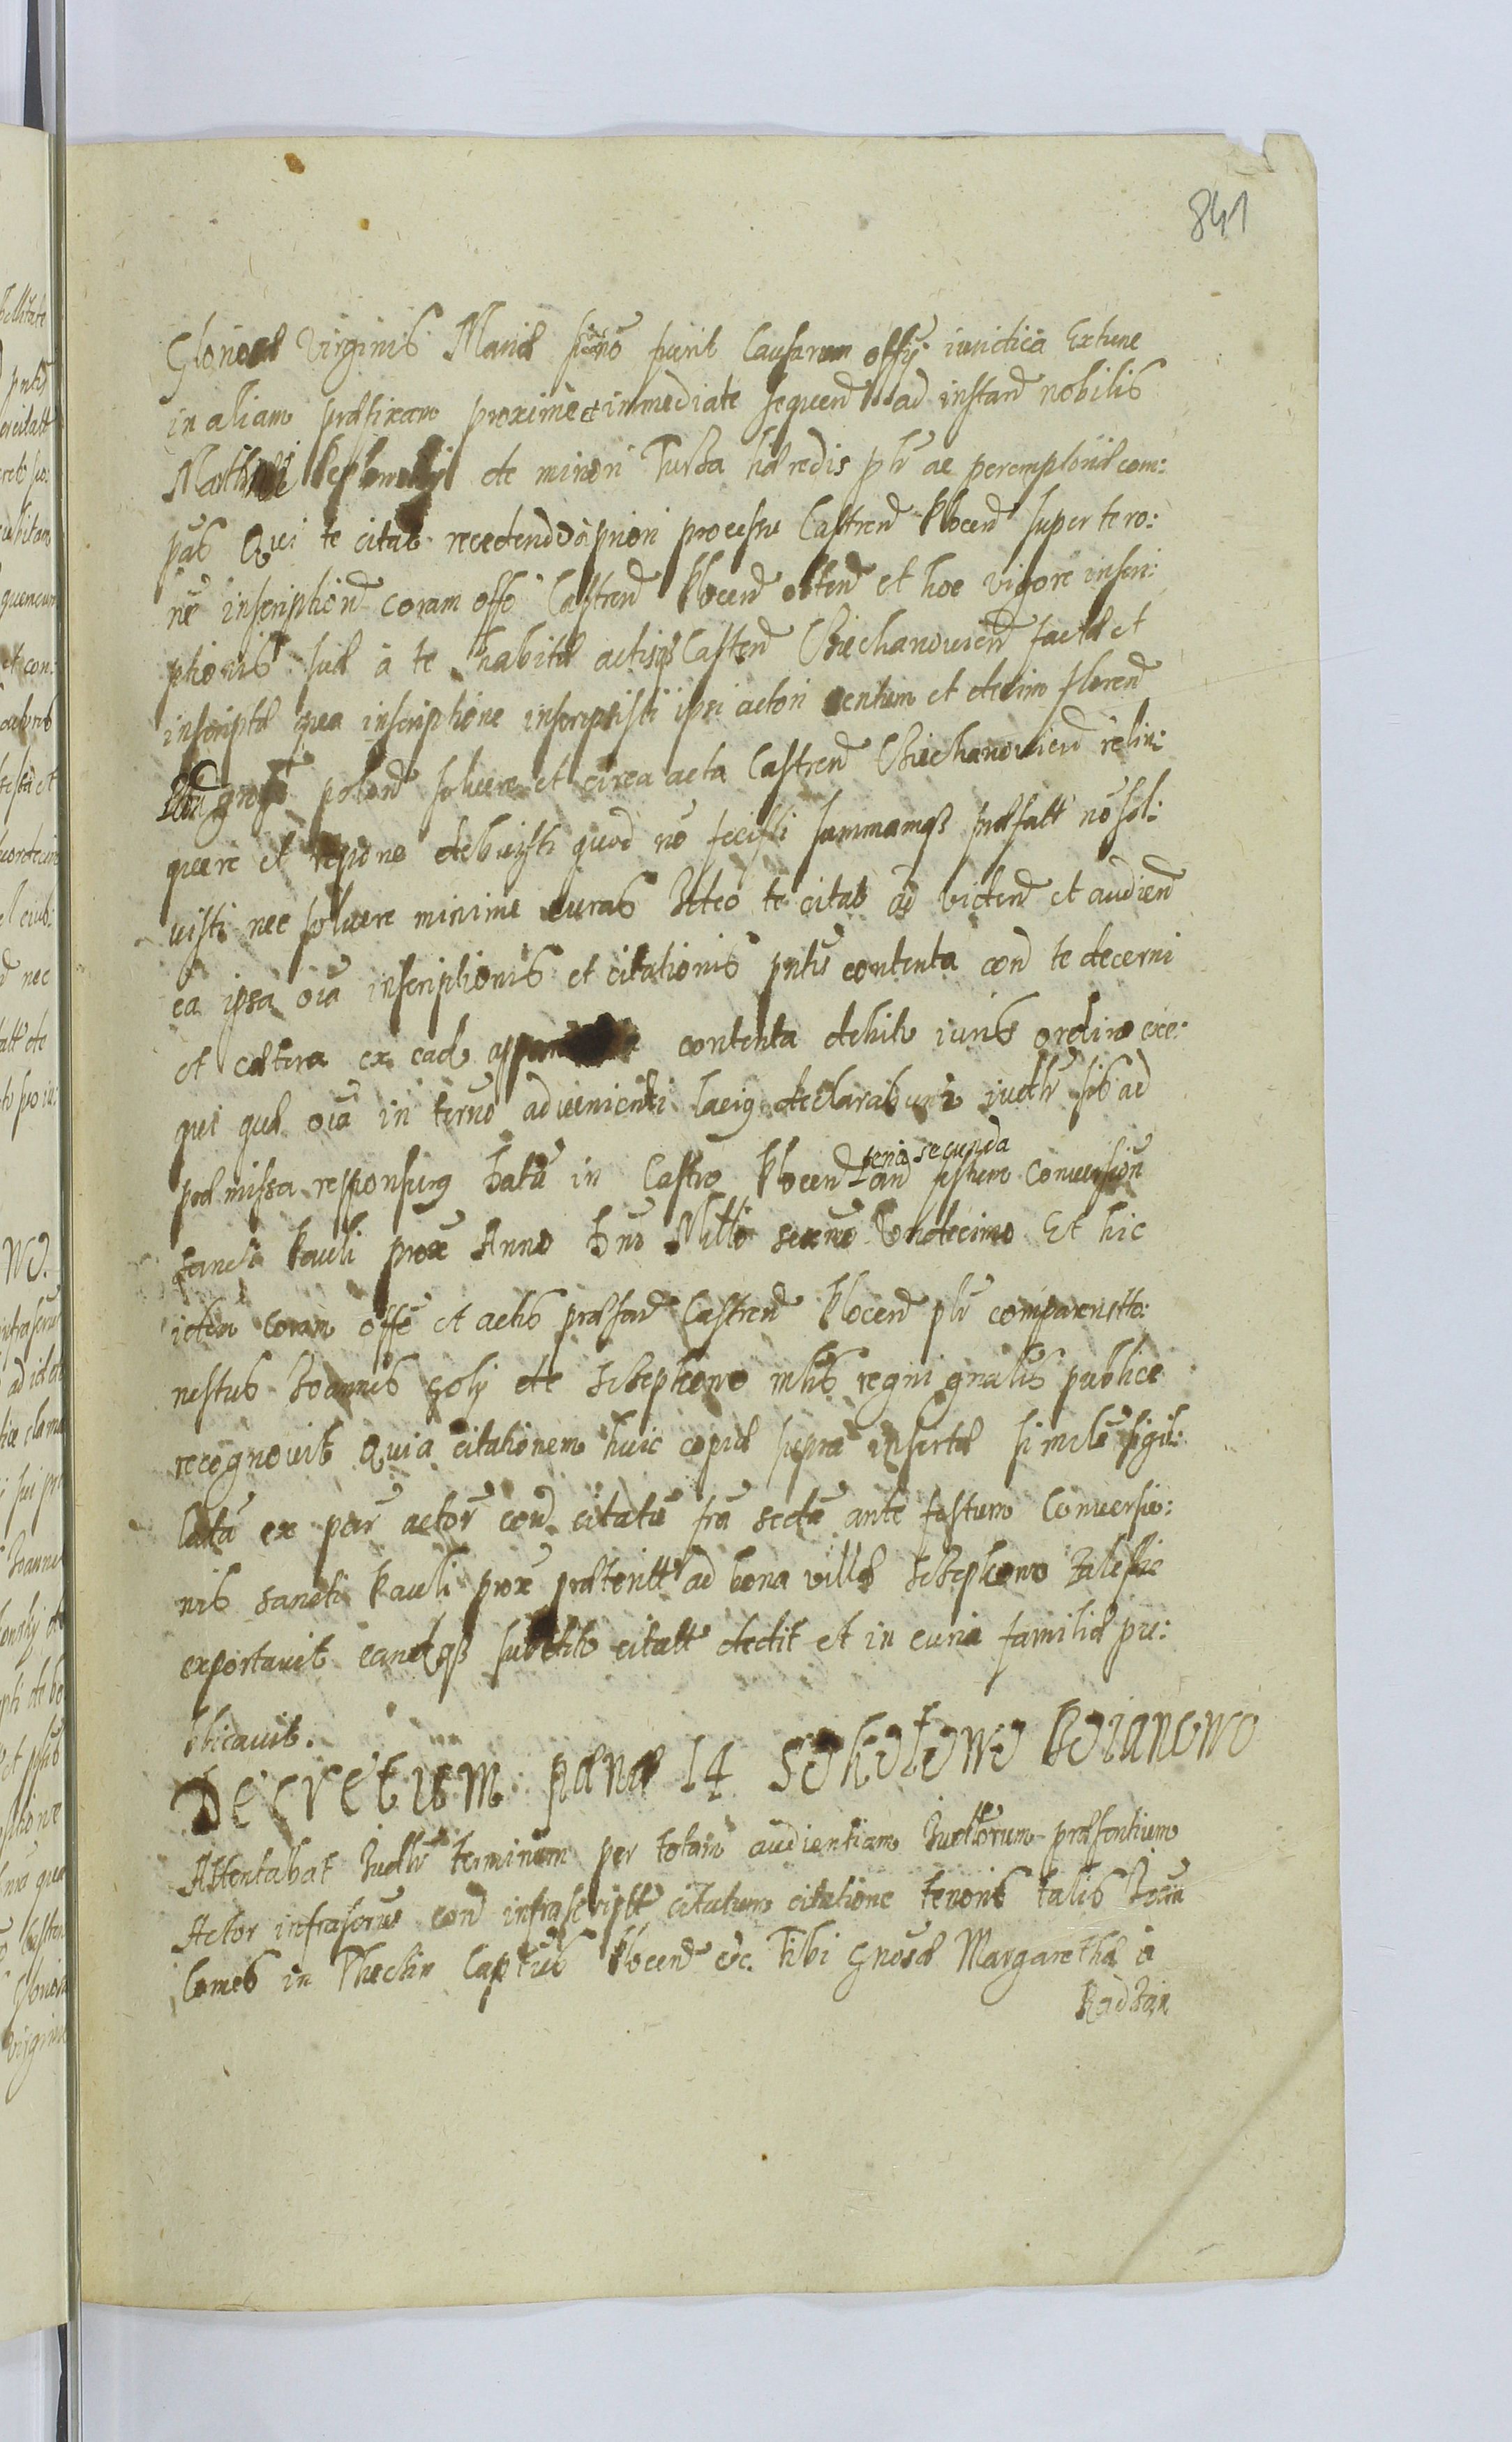 841
Gloriosæ Virginis Mariæ fuerit Causarum offŷ iuridica Extunc
in aliam præfixam proxime et immediate sequend ad instand nobilis
de minori Turza hæredis plr ac peremptoriæ com:
pas Qui te citat recedendo à priori processu Castrend Plocend super te ro:
ne inscription coram offo Castrend Plocend obtend et hoc vigore inscri:
ptionis suæ à te habitæ actisq Castrend Ciechanoviend factæ et
inscriptæ qua inscriptione inscripsisti ipsi actori centum et decim florend
gross polond soluere et circa acta Castrend Ciechanoviend relin:
quere et repone debuisti quod no fecisti summamqz præfatt no sol:
uisti nec soluere minime curas Ideo te citat ad videnđ et audiend
ea ipsa oia inscriptionis et citationis pntis contenta cond te decerni
et cætera ex ead contenta debite iuris ordine exe:
qui quæ oia in termo aduenienti laciq declarabunt judlr sis ad
præmissa responsurq Datu in Castro Plocend feria secunda and festum Conversion
Sancti Pauli prox Anno Dno Millo sexmo Undecimo Et hic
idem coram offo et actis præsand Castrend Plocend plr comparens ho:
nestus Joannes Goly de Szczepkowo mlis regni gnalis publice
recognouit Quia citationem huic copiæ supra insertæ simile sigil:
lata ex par actor cond citatu fra secda ante festum Conuersio:
nis Sancti Pauli prox præteritt ad bona villæ Szczepkowo Zalesie
exportauit eandqz subdit citatt dedit et in curia familiæ pu:
blicauit.
Decretum pænæ 14 Sokołowo Boianowo
Attentabat Judlr terminum per totam audientiam Judlorum præsentium
Actor infrascrius cond infrascriptt citatum citatione tenoris talis
Comes in Thęczin Captus Plocend &c. Tibi Gnosæ Margarethæ à
Radzan